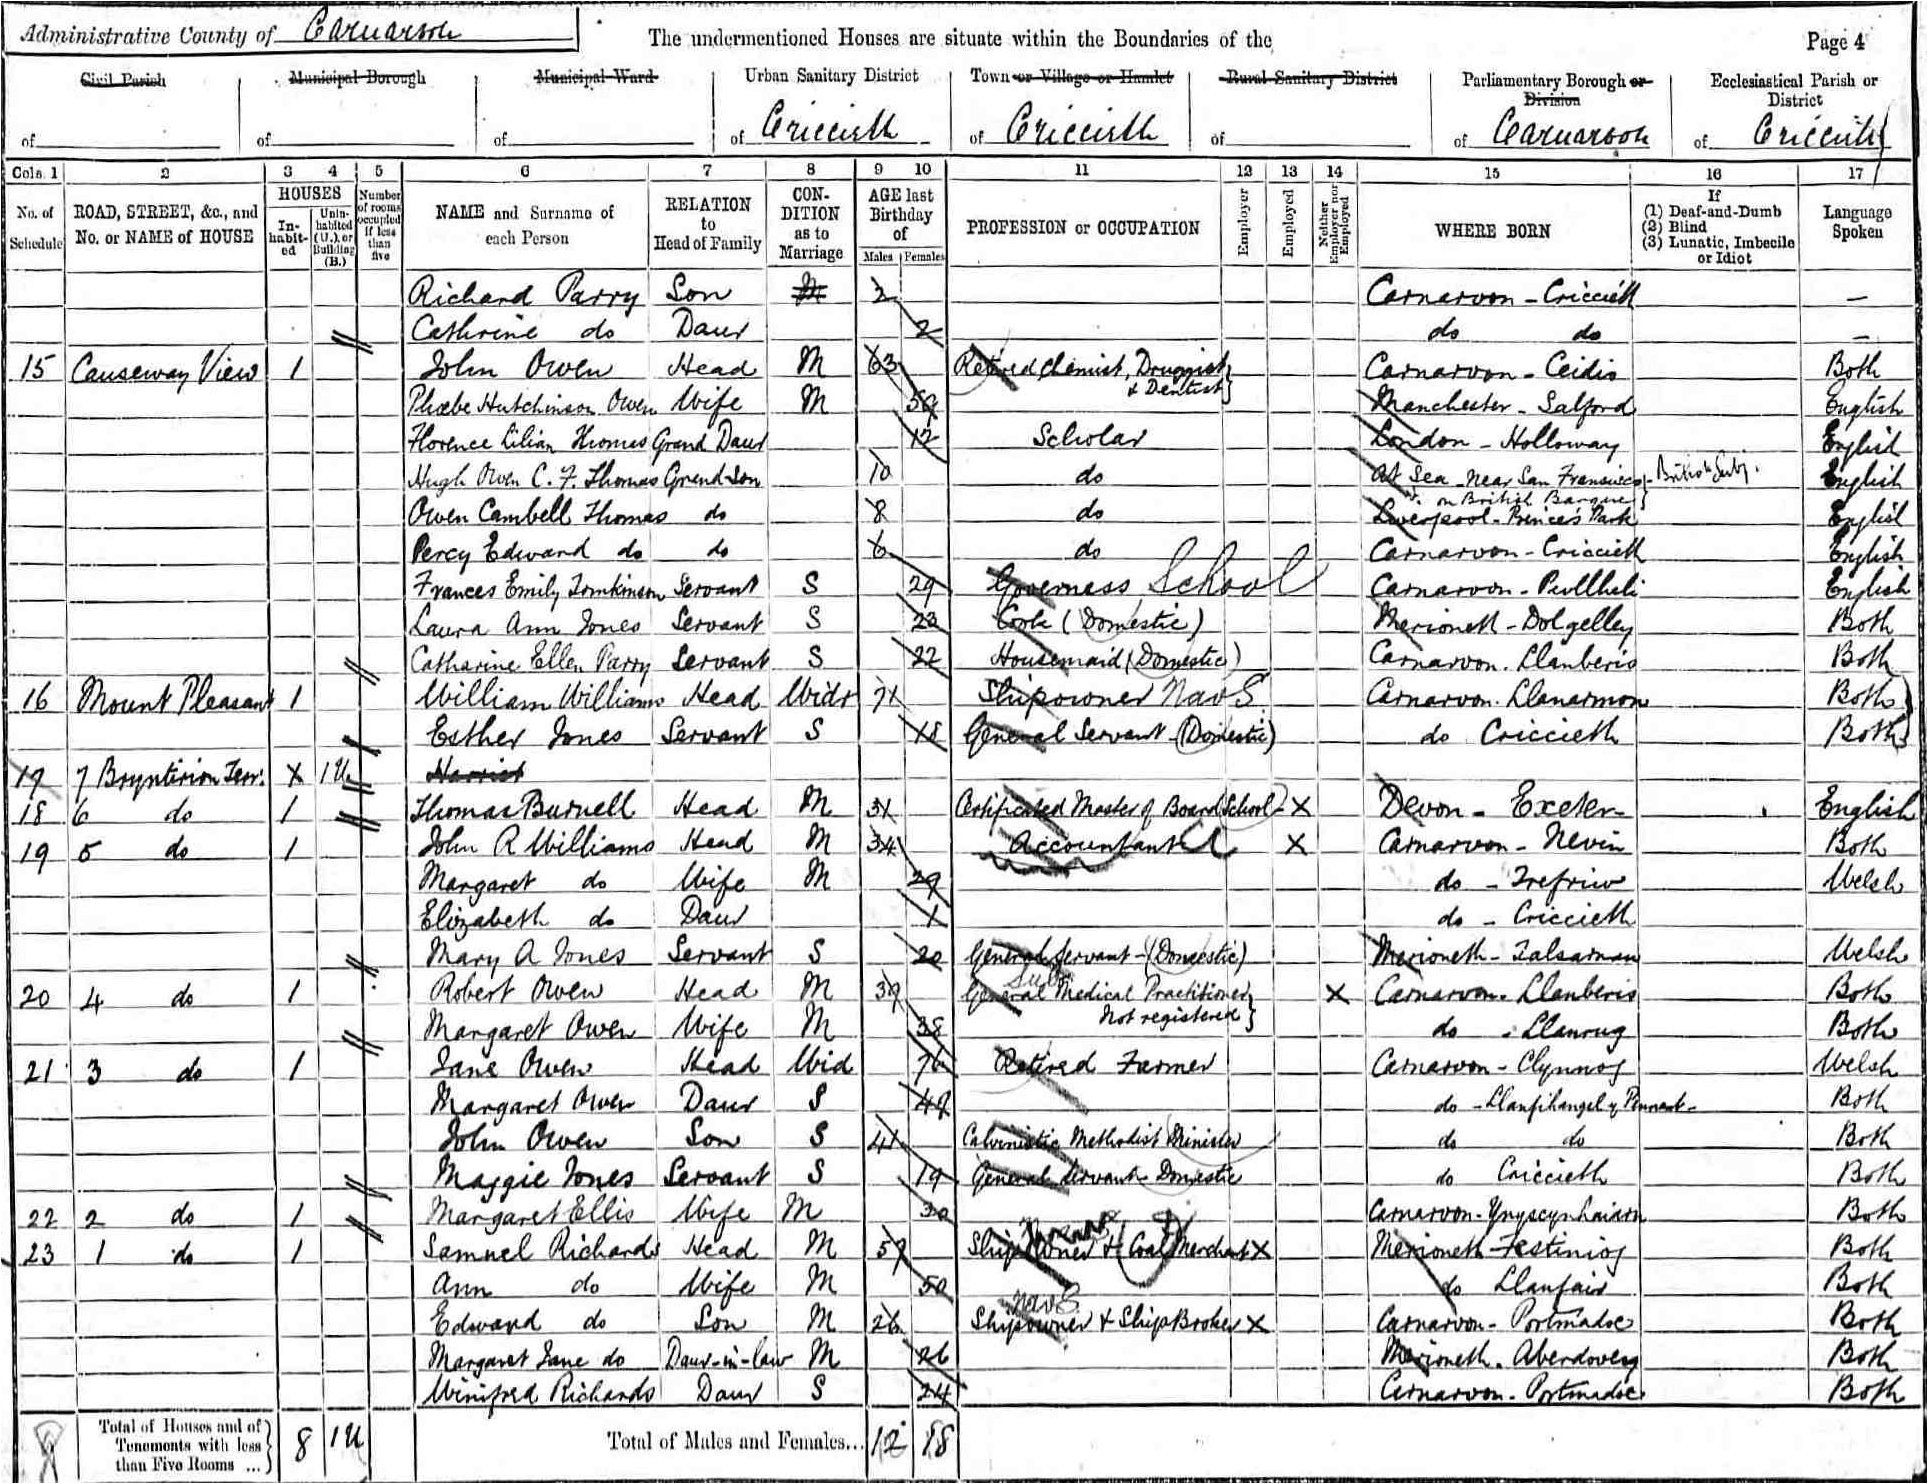 Administrative County of Carnarvon
The undermentioned Houses are situate within the Boundaries of the
Page 4
Civil Parish of
Municipal Borough of
Municipal Ward of
Urban Sanitary District of Criccieth
Town or Village or Hamlet of Criccieth
Rural Sanitary District of
Parliamentary Borough or Division of Carnarvon
Ecclesiastical Parish or District of Criccieth
Cols. 1 2 3 4 5 6 7 8 9 10 11 12 13 14 15 16 17
No. of Schedule
ROAD, STREET, &c., and No. or NAME of HOUSE
HOUSES
In-habit-ed
Unin-habited (U.), or Building (B.)
Number of rooms occupied if less than five
NAME and Surname of each Person
RELATION to Head of Family
CON-DITION as to Marriage
AGE last Birthday of
Males Females
PROFESSION or OCCUPATION
Employer
Employed
Neither Employer nor Employed
WHERE BORN
If (1) Deaf-and-Dumb (2) Blind (3) Lunatic, Imbecile or Idiot
Language Spoken
Richard Parry Son M 2 Carnarvon - Criccieth —
Cathrine do Daur 2 do do —
15 Causeway View 1 John Owen Head M 63 Retired Chemist, Druggist & Dentist } Carnarvon - Ceidio Both
Phœbe Hutchinson Owen Wife M 59 Manchester - Salford English
Florence Lilian Thomas Grand Daur 12 Scholar London - Holloway English
Hugh Owen C. F. Thomas Grand Son 10 do At Sea near San Fransisco on British Barque } British Subj. English
Owen Cambell Thomas do 8 do Liverpool - Princes Park English
Percy Edward do do 6 do Carnarvon - Criccieth English
Frances Emily Tomkinson Servant S 29 Governess School Carnarvon - Pwllheli English
Laura Ann Jones Servant S 23 Cook (Domestic) Merioneth - Dolgelley Both
Catharine Ellen Parry Servant S 22 Housemaid (Domestic) Carnarvon. Llanberis Both
16 Mount Pleasant 1 William Williams Head Widr 71 Shipowner Nav S. Carnarvon. Llanarmon Both
Esther Jones Servant S 18 General Servant (Domestic) do Criccieth Both
17 7 Bryntirion Terr. X 1U Harriet
18 6 do 1 Thomas Burnell Head M 31 Certificated Master of Board School - X Devon - Exeter English
19 5 do 1 John R Williams Head M 34 Accountant X Carnarvon - Nevin Both
Margaret do Wife M 29 do - Trefriw Welsh
Elizabeth do Daur 1 do - Criccieth
Mary A Jones Servant S 20 General Servant - (Domestic) Merioneth - Talsarnau Welsh
20 4 do 1 Robert Owen Head M 39 General Medical Practitioner Not registered } X Carnarvon. Llanberis Both
Margaret Owen Wife M 38 do - Llanrug Both
21 3 do 1 Jane Owen Head Wid 76 Retired Farmer Carnarvon - Clynnog Welsh
Margaret Owen Daur S 49 do - Llanfihangel y Pennant - Both
John Owen Son S 41 Calvinistic Methodist Minister do do Both
Maggie Jones Servant S 19 General Servant Domestic do Criccieth Both
22 2 do 1 Margaret Ellis Wife M 30 Carnarvon - Ynyscynhaiarn Both
23 1 do 1 Samuel Richards Head M 59 Ship Owner & Coal Merchant X Merioneth - Festiniog Both
Ann do Wife M 50 do Llanfair Both
Edward do Son M 26 Shipowner & Ship Broker X Nav S Carnarvon - Portmadoc Both
Margaret Jane do Daur-in-law M 26 Merioneth. Aberdovey Both
Winifred Richards Daur S 24 Carnarvon - Portmadoc Both
Total of Houses and of Tenements with less than Five Rooms ... } 8 1U
Total of Males and Females... 12 18